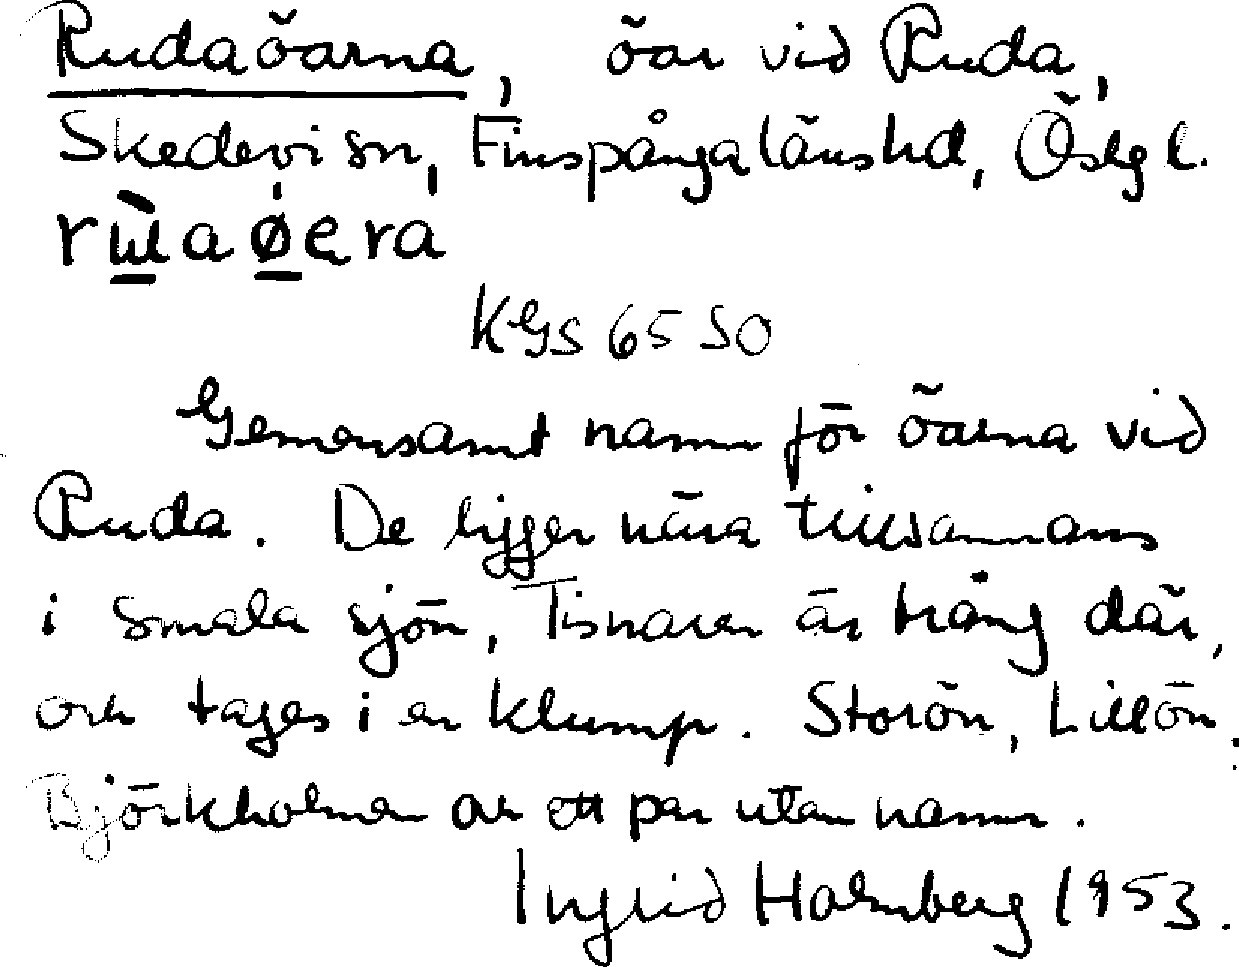 Rudaöarna, öar vid Ruda,
Skedevi sn, Finspånga länshd, Östg l.
KGS 65 SO
Gemensamt namn för öarna vid
Ruda. De ligger nära tillsammans
i smala sjön, Tisnaren är trång där,
och tages i en klump. Storön, Lillön,
Björkholmen och ett par utan namn.
Ingrid Holmberg 1953.